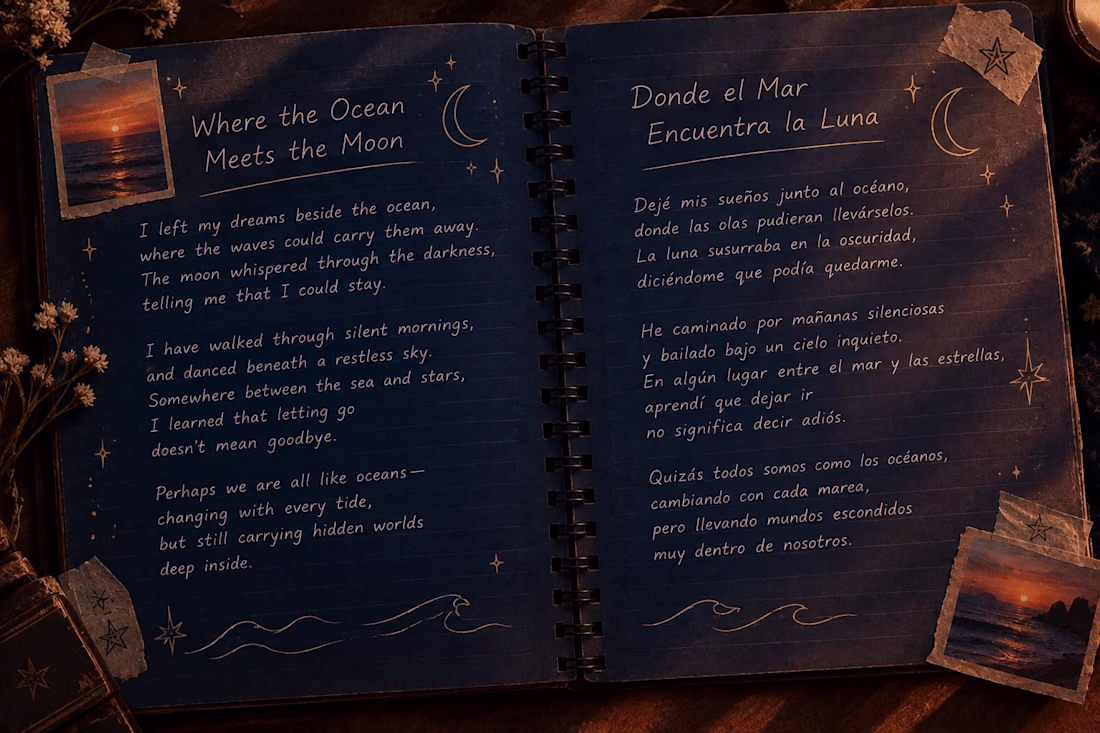 Where the Ocean
Meets the Moon
I left my dreams beside the ocean,
where the waves could carry them away.
The moon whispered through the darkness,
telling me that I could stay.
I have walked through silent mornings,
and danced beneath a restless sky.
Somewhere between the sea and stars,
I learned that letting go
doesn't mean goodbye.
Perhaps we are all like oceans—
changing with every tide,
but still carrying hidden worlds
deep inside.
Donde el Mar
Encuentra la Luna
Dejé mis sueños junto al océano,
donde las olas pudieran llevárselos.
La luna susurraba en la oscuridad,
diciéndome que podía quedarme.
He caminado por mañanas silenciosas
y bailado bajo un cielo inquieto.
En algún lugar entre el mar y las estrellas,
aprendí que dejar ir
no significa decir adiós.
Quizás todos somos como los océanos,
cambiando con cada marea,
pero llevando mundos escondidos
muy dentro de nosotros.